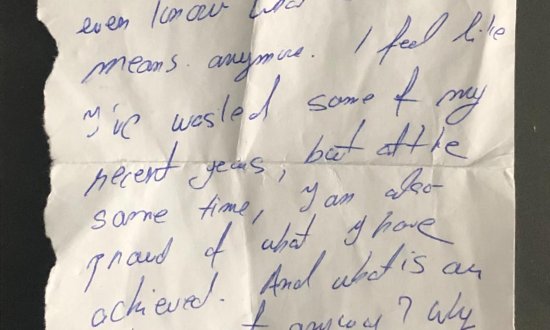 even know what
means anymore. I feel like
I've wasted some of my
recent years, but at the
same time, I am also
proud of what I have
achieved. And what is an
anyway? Why